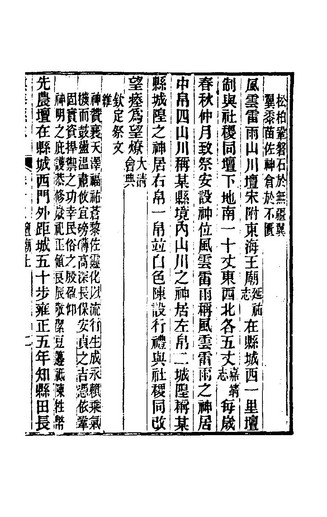 松柏鞏磐石於無疆翼
翼黍苗佐神倉於不匱
風雲雷雨山川壇宋附東海王廟延祐志在縣城西一里壇
制與社稷同壇下地南一十丈東西北各五丈嘉靖志每歲
春秋仲月致祭安設神位風雲雷雨稱風雲雷雨之神居
中帛四山川稱某縣境內山川之神居左帛二城隍稱某
縣城隍之神居右帛一帛並白色陳設行禮與社稷同改
望瘞為望燎大清會典
欽定祭文
維
神贊襄天澤福祐蒼黎佐靈化以流行生成永賴乘氣
機而鼓盪溫肅攸宜磅礴高深長保安貞之吉憑依鞏
固實資捍禦之功幸民俗之殷盈仰
神明之庇護恭修歲祀正值良辰敬潔豆籩祗陳牲幣
先農壇在縣城西門外距城五十步雍正五年知縣田長